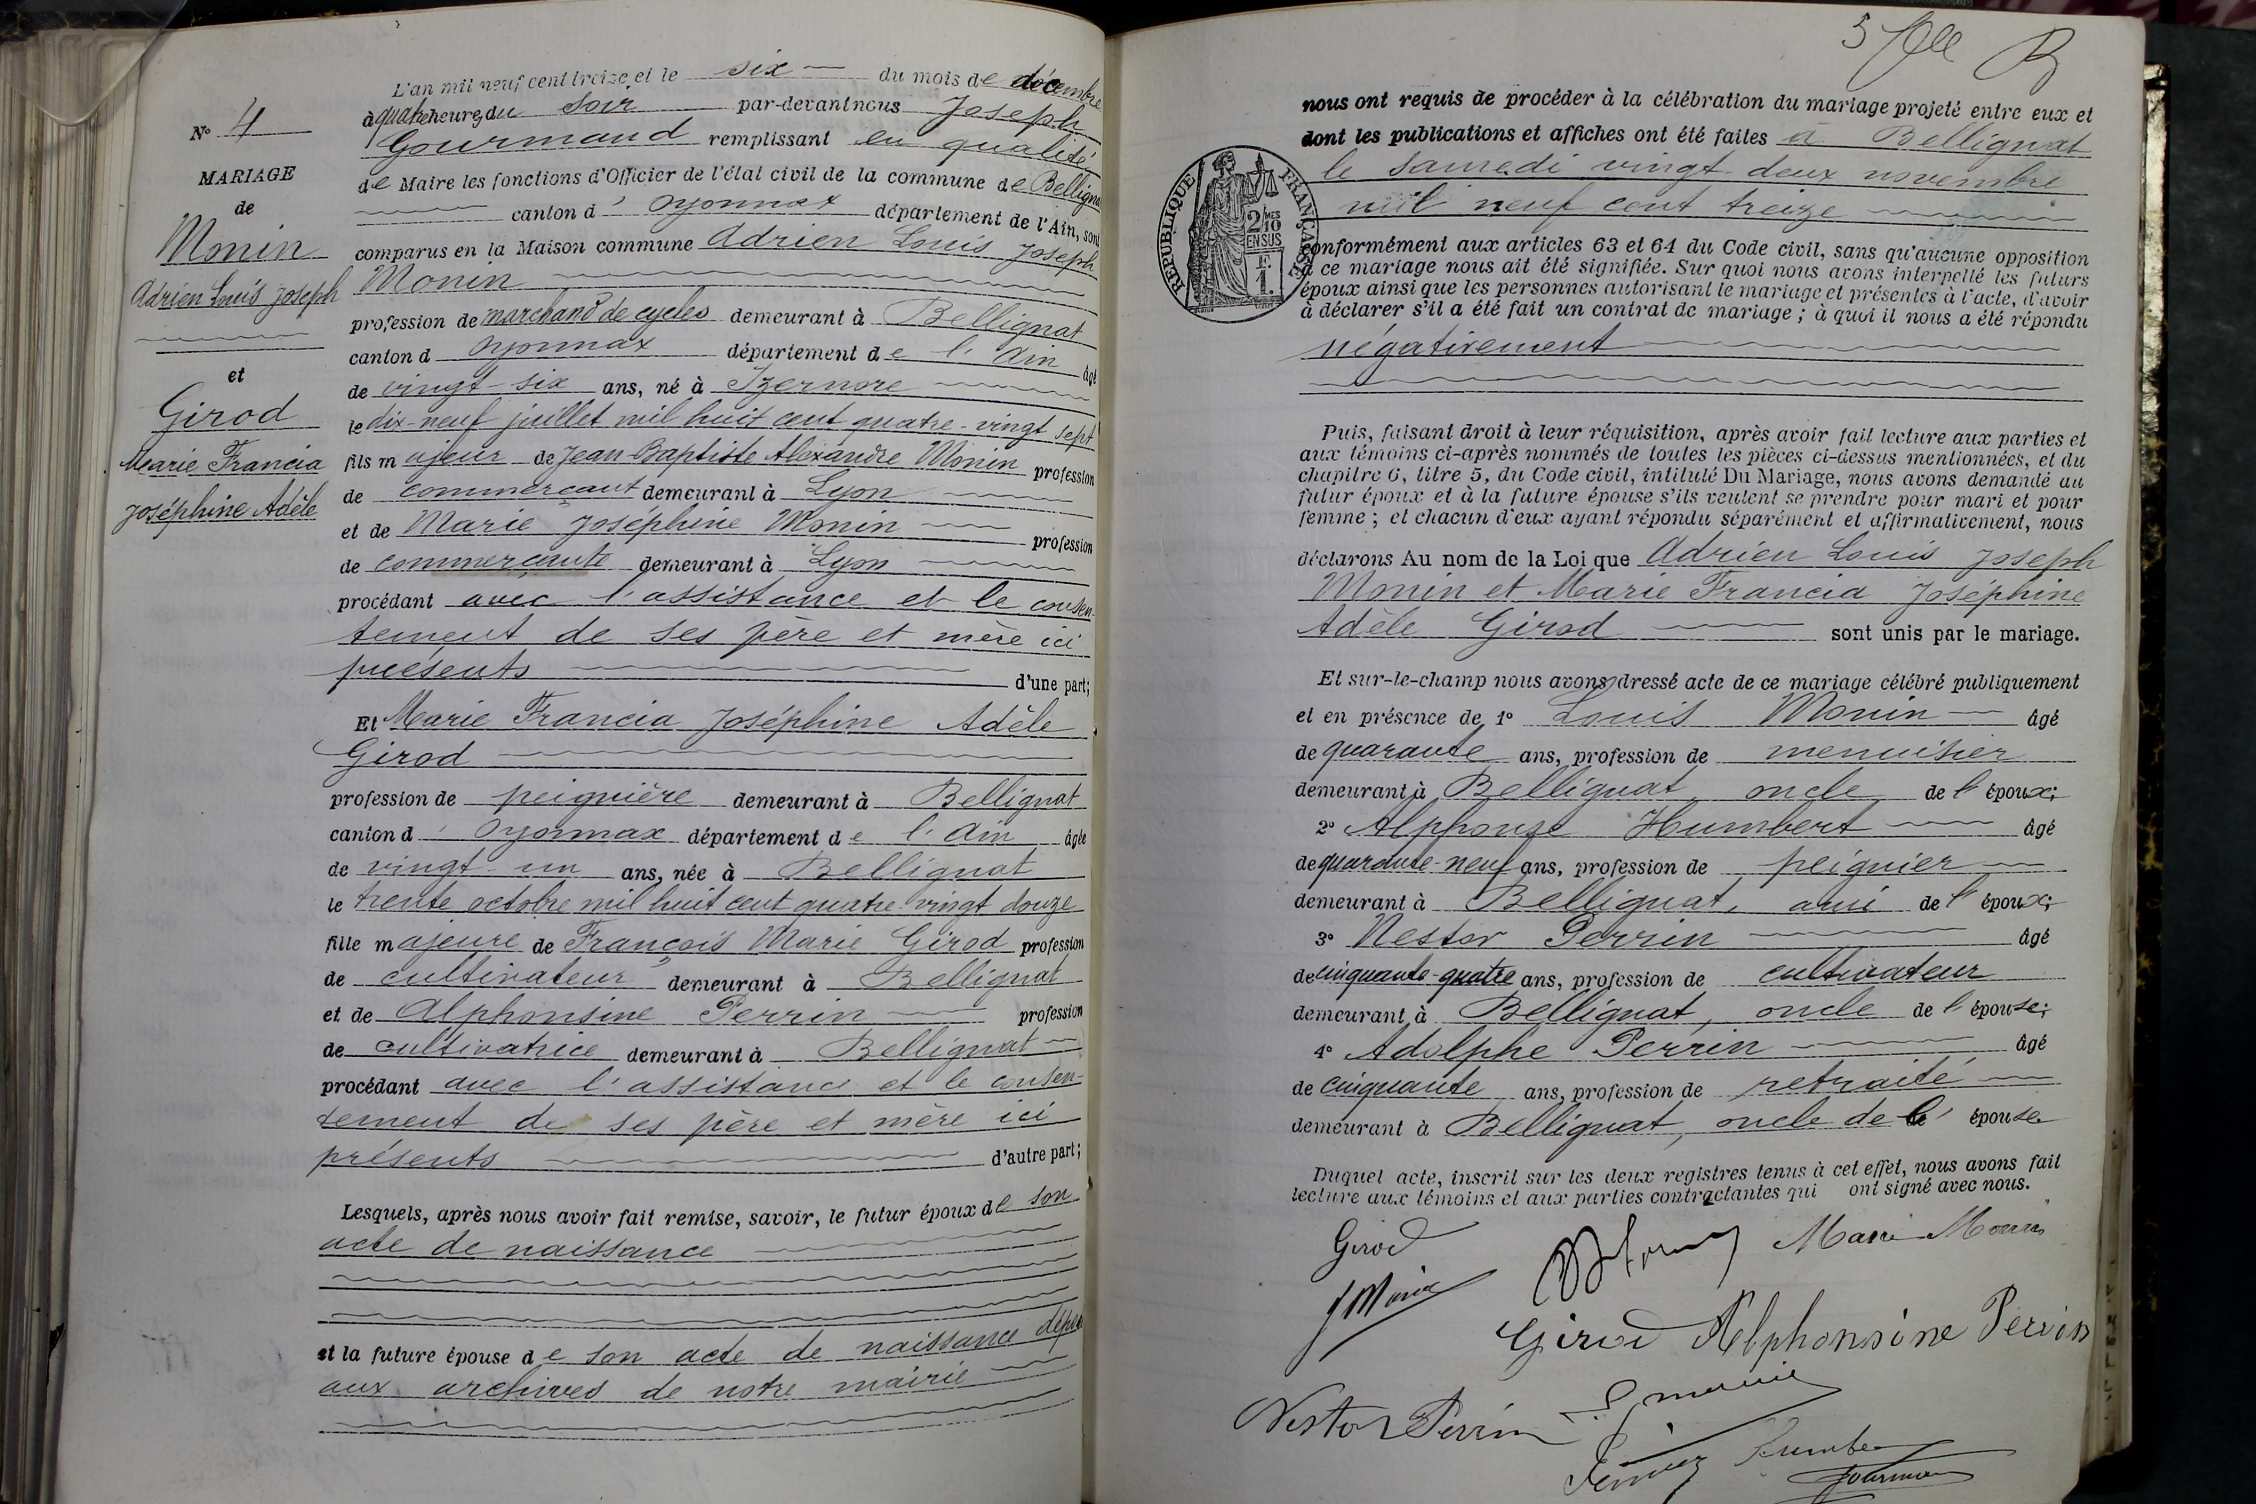 N° 4
MARIAGE
de
Monin
Adrien Louis Joseph
et
Girod
Marie Francia
Joséphine Adèle
L'an mil neuf cent treize, et le six du mois de décembre
à quatre heures du soir par-devant nous Joseph
Gourmand remplissant en qualité
de Maire les fonctions d'Officier de l'état civil de la commune de Bellignat
canton d'Oyonnax département de l'Ain, sont
comparus en la Maison commune Adrien Louis Joseph
Monin
profession de marchand de cycles demeurant à Bellignat
canton d Oyonnax département de l'Ain âgé
de vingt-six ans, né à Izernore
le dix-neuf juillet mil huit cent quatre-vingt sept
fils majeur de Jean Baptiste Alexandre Monin profession
de commerçant demeurant à Lyon
et de Marie Joséphine Monin profession
de commerçante demeurant à Lyon
procédant avec l'assistance et le consen-
tement de ses père et mère ici
présents d'une part;
Et Marie Francia Joséphine Adèle
Girod
profession de peignière demeurant à Bellignat
canton d'Oyonnax département de l'Ain âgée
de vingt-un ans, née à Bellignat
le trente octobre mil huit cent quatre-vingt douze
fille majeure de François Marie Girod profession
de cultivateur demeurant à Bellignat
et de Alphonsine Perrin profession
de cultivatrice demeurant à Bellignat
procédant avec l'assistance et le consen-
tement de ses père et mère ici
présents d'autre part;
Lesquels, après nous avoir fait remise, savoir, le futur époux de son
acte de naissance
et la future épouse de son acte de naissance déposé
aux archives de notre mairie
5
nous ont requis de procéder à la célébration du mariage projeté entre eux et
dont les publications et affiches ont été faites à Bellignat
le samedi vingt deux novembre
mil neuf cent treize
RÉPUBLIQUE FRANÇAISE
2/10MES
EN SUS
F
1.
conformément aux articles 63 et 64 du Code civil, sans qu'aucune opposition
à ce mariage nous ait été signifiée. Sur quoi nous avons interpellé les futurs
époux ainsi que les personnes autorisant le mariage et présentes à l'acte, d'avoir
à déclarer s'il a été fait un contrat de mariage; à quoi il nous a été répondu
négativement
Puis, faisant droit à leur réquisition, après avoir fait lecture aux parties et
aux témoins ci-après nommés de toutes les pièces ci-dessus mentionnées, et du
chapitre 6, titre 5, du Code civil, intitulé Du Mariage, nous avons demandé au
futur époux et à la future épouse s'ils veulent se prendre pour mari et pour
femme; et chacun d'eux ayant répondu séparément et affirmativement, nous
déclarons Au nom de la Loi que Adrien Louis Joseph
Monin et Marie Francia Joséphine
Adèle Girod sont unis par le mariage.
Et sur-le-champ nous avons dressé acte de ce mariage célébré publiquement
et en présence de 1° Louis Monin âgé
de quarante ans, profession de menuisier
demeurant à Bellignat oncle de l'époux;
2° Alphonse Humbert âgé
de quarante-neuf ans, profession de peignier
demeurant à Bellignat, ami de l'époux;
3° Nestor Perrin âgé
de cinquante-quatre ans, profession de cultivateur
demeurant à Bellignat, oncle de l'épouse;
4° Adolphe Perrin âgé
de cinquante ans, profession de retraité
demeurant à Bellignat, oncle de l'épouse
Duquel acte, inscrit sur les deux registres tenus à cet effet, nous avons fait
lecture aux témoins et aux parties contractantes qui ont signé avec nous.
Girod Marie Monin
J Monin
Girod Alphonsine Perrin
Nestor Perrin